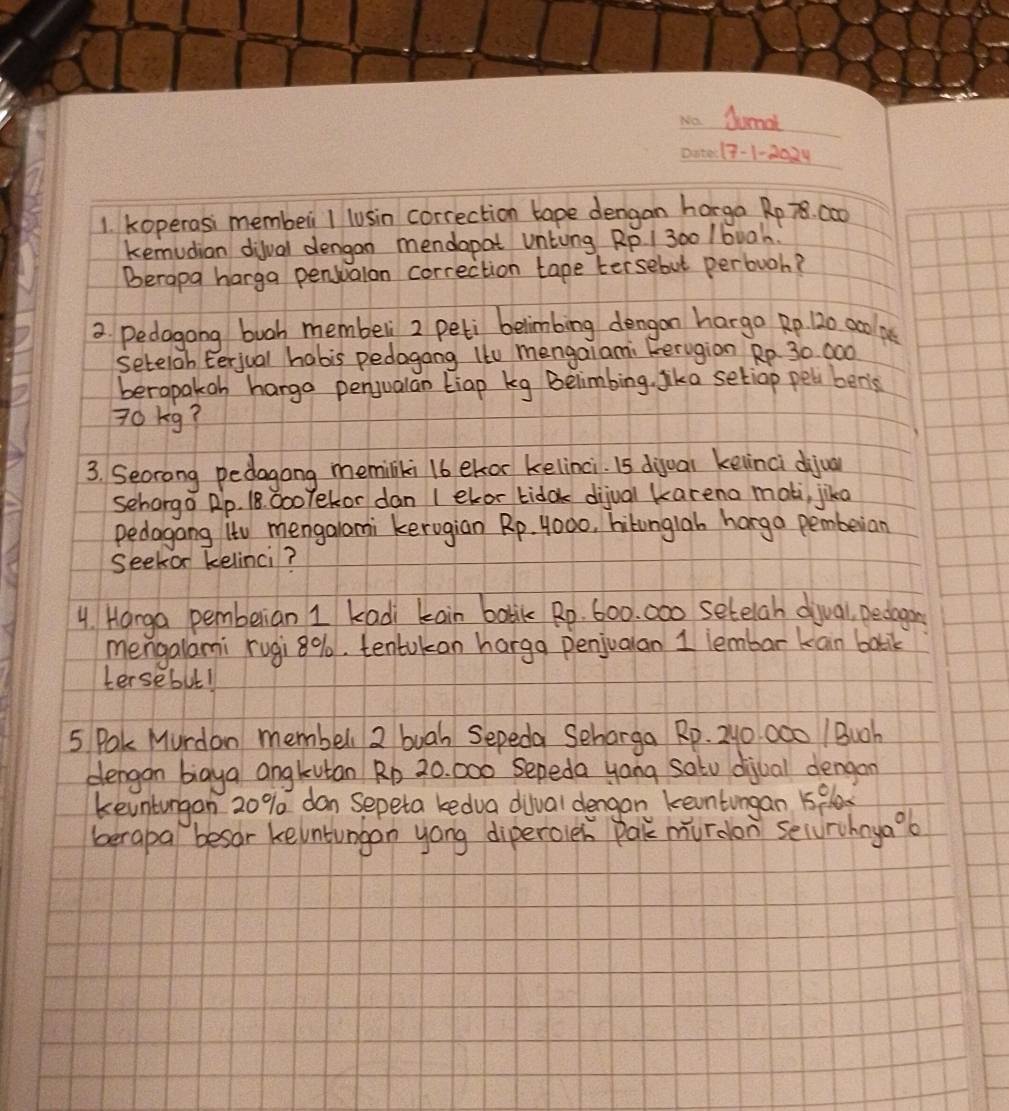 No. Jumat
Date: 17-1-2024
1. Koperasi membeli 1 lusin correction tape dengan harga Rp 78.000
kemudian dijual dengan mendapat untung Rp.1300/buah.
Berapa harga penjualan correction tape tersebut perbuah?
2. Pedagang buah membeli 2 peti belimbing dengan harga Rp. 120.000/pt
setelah terjual habis pedagang itu mengalami kerugian Rp. 30.000
berapakah harga penjualan tiap kg Belimbing. Jika setiap peti beris
70 kg?
3. Seorang pedagang memiliki 16 ekor kelinci. 15 dijual kelinci dijual
seharga Rp. 18.000/ekor dan 1 ekor tidak dijual karena mati, jika
pedagang itu mengalami kerugian Rp. 4000, hitunglah harga pembeian
seekor kelinci?
4. Harga pembeian 1 kodi kain batik Rp. 600.000 setelah dijual, pedagang
mengalami rugi 8%. tentukan harga penjualan 1 lembar kain batik
tersebut!
5 Pak Murdan membeli 2 buah Sepeda Seharga Rp. 240.000 /Buah
dengan biaya angkutan Rp 20.000 Sepeda yang satu dijual dengan
keuntungan 20% dan Sepeta kedua dijual dengan keuntungan 15%
berapa besar keuntungan yang diperoleh Pak murdan seluruhnya %